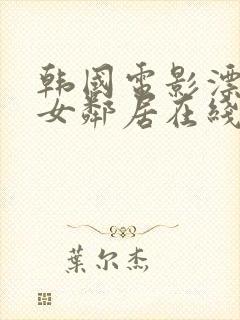 韩国电影漂
女邻居在线
葉尔杰